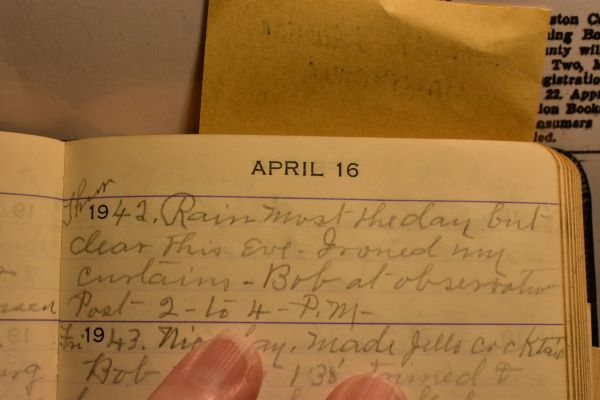 ston Co
ing Bo
unty wil
Two, M
gistration
22. App
ion Book
nsumers
led.
APRIL 16
Thur
1942. Rain most the day but
clear this Eve - Ironed my
curtains - Bob at observation
Post 2 - to 4 - P.M -
Fri 1943. Nice day. Made Jello cocktail
Bob 1:35